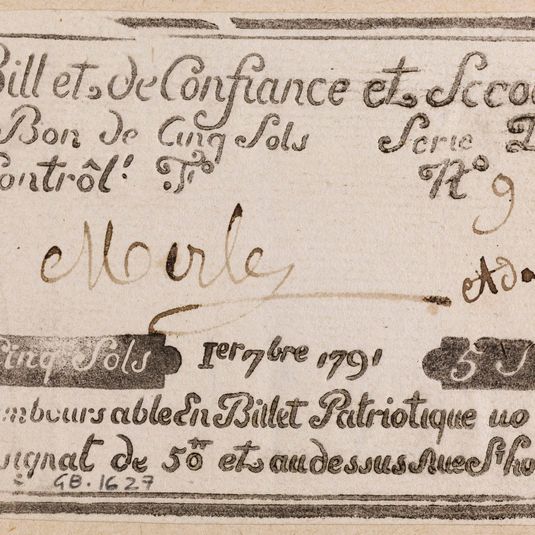 Billet de Confiance et Secou
Bon de Cinq Sols Serie D
Contrôl! F.o N.o 9
Merle Ada
Cinq Sols 1er 7bre 1791 5 S
mboursable En Billet Patriotique uo
signat de 50tt et audessus Rue St ho
GB.1627